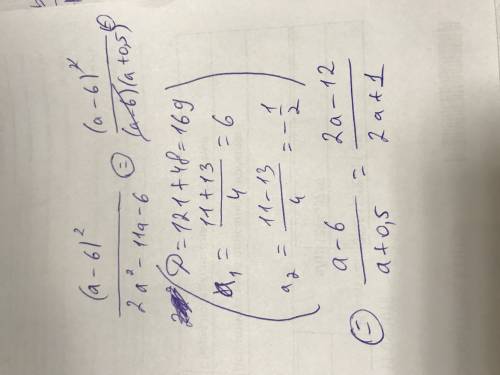 (a-6)² / 2a²-11a-6 = (a-6)² / (a-6)(a+0,5) =
D=121+48=169
a₁ = 11+13 / 4 = 6
a₂ = 11-13 / 4 = -1/2
= a-6 / a+0,5 = 2a-12 / 2a+1